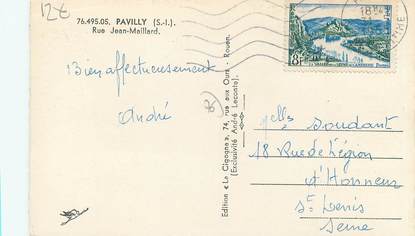 12€
76.495.05. PAVILLY (S.-I.).
Rue Jean-Maillard.
Bien affectueusement
André
Edition « La Cigogne », 74, rue aux Ours - Rouen.
(Exclusivité André Leconte)
8F
LA VALLÉE DE LA SEINE AUX ANDELYS
POSTES
18H
Melles Soudant
18 Rue de Légion
d'Honneur
St Denis
Seine